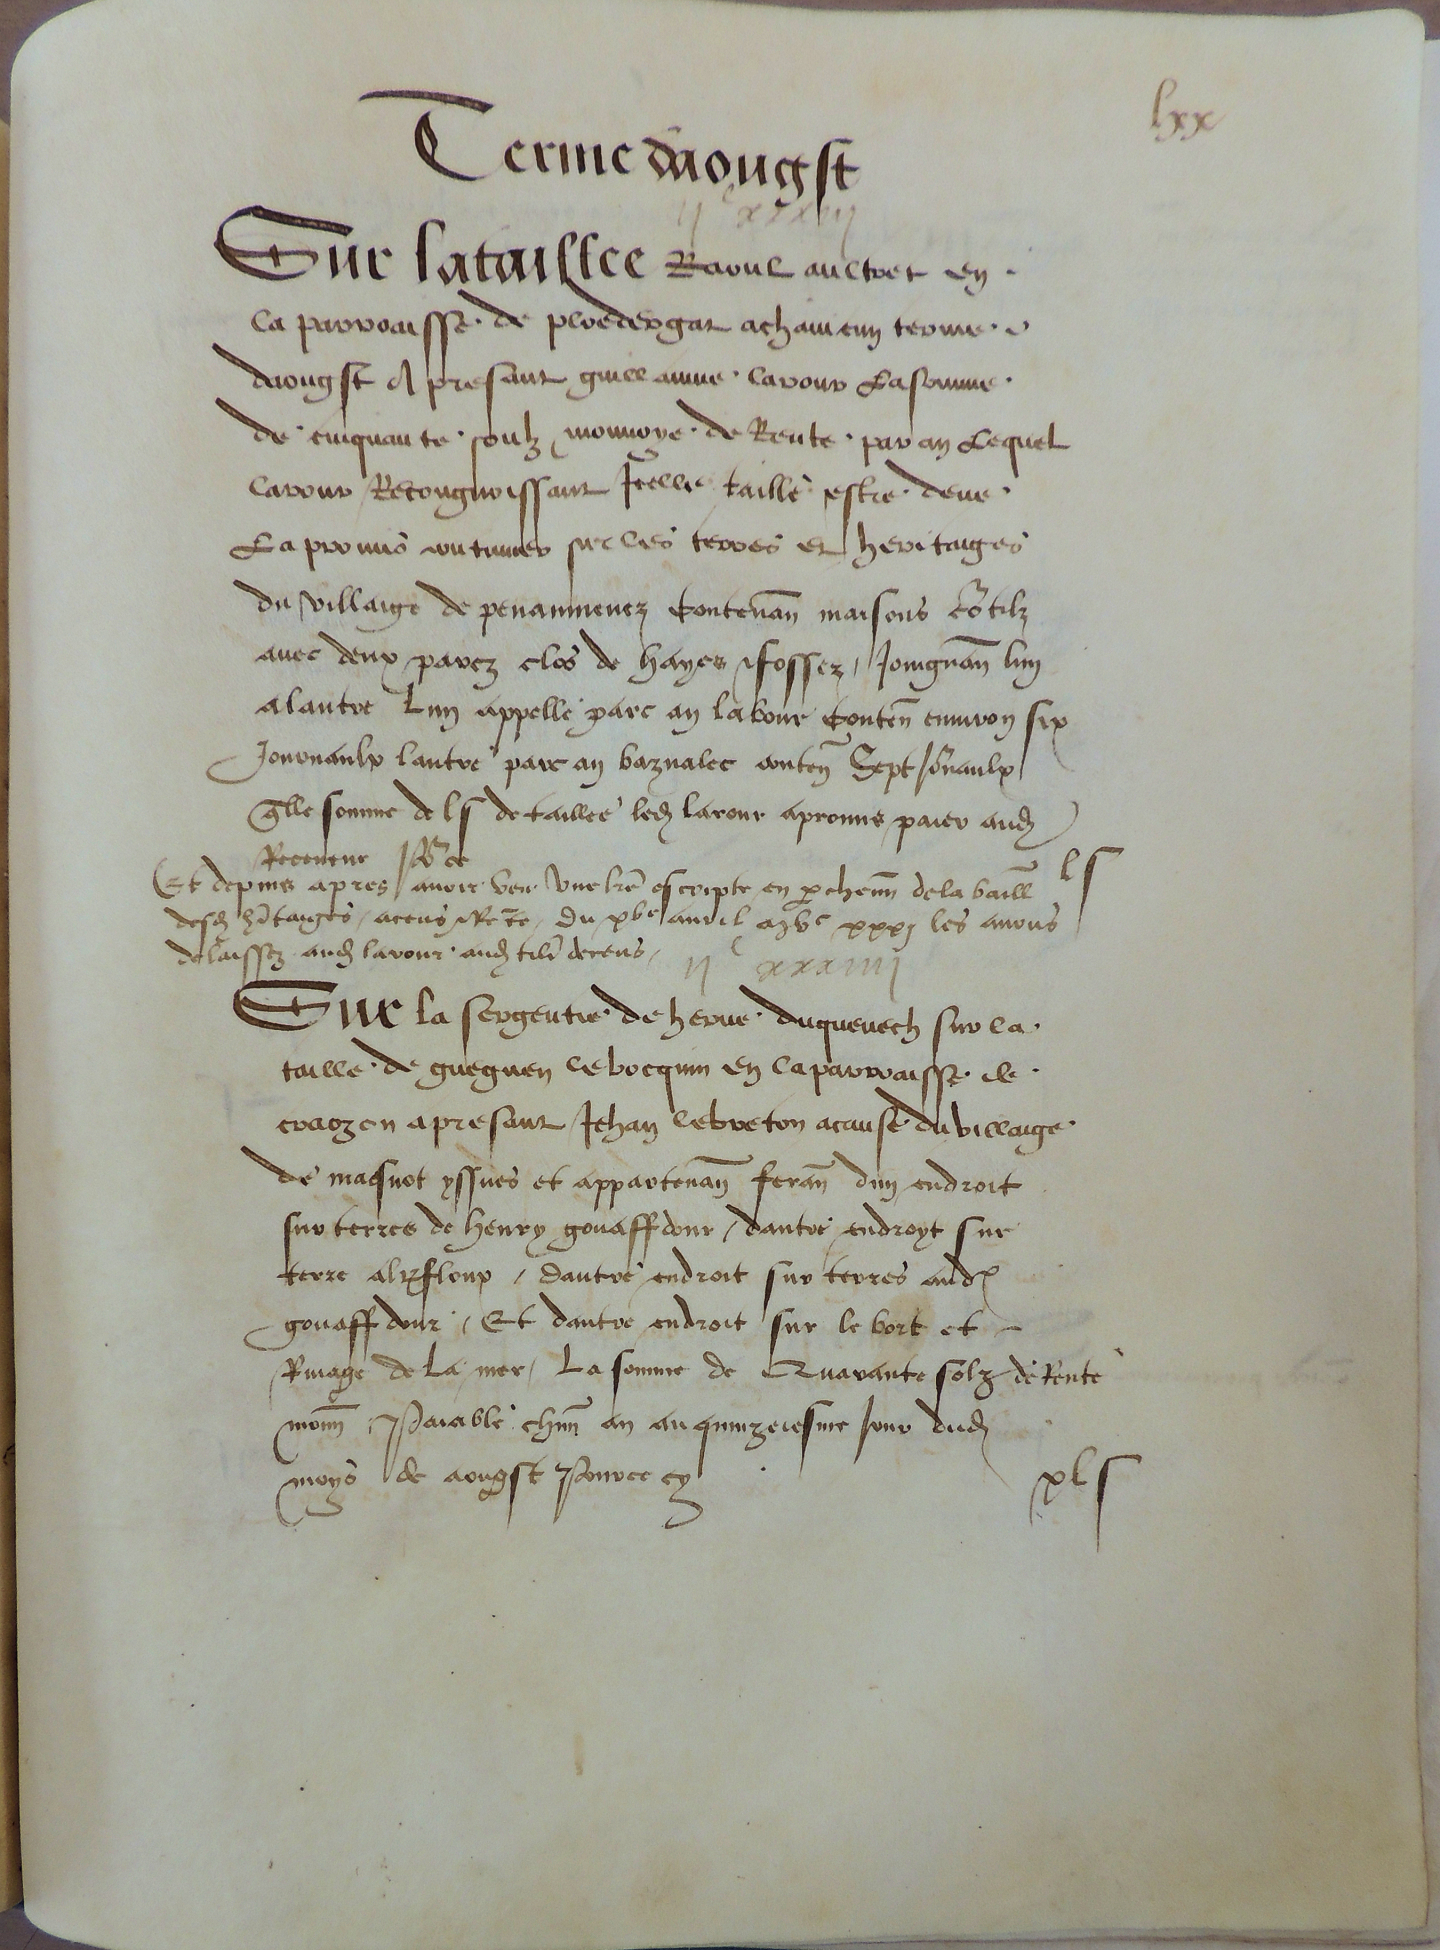 lxx
Terme daougst
ii c xxxiii
Sur lataillee Raoul aultret en
la parroaisse de ploedergat achaincun terme
daougst A presant guillaume larour La somme
de cinquante soulz monnoye de Rente par an Lequel
larour Recongnoissant Icelle taille estre deue
La promis continuer sur les terres et heritaiges
du villaige de penanmenez Contenan maisons co tilz
avec deux parcz clos de hayes fossez / Joingnan lun
a lautre Lun appelle parc an labour Conten environ six
Journaulx lautre parc an baznalec conten Sept Jornaulx
qlle somme de l s de taillee led larour a promis paier aud
Receveur
Et depuis apres avoir veu une lre escripte en pchemin de la baill
l s
desd hitaiges / acens Rete / du xve avril m vc xxxj les avons
delaissez aud larour aud tiltre de cens /
ii c xxxiiii
Sur la sergentie de herve duquenech sur la
taille de gueguen lebocquin en la parroaisse de
craozon apresant Jehan lebreton acause du villaige
de yssues et appartenan feran dun endroit
sur terres de henry gouaffdour / dautre endroyt sur
terre / Dautre endroit sur terres aud
gouaffdour / Et dautre endroit sur le bort et
Rivage de La mer / La somme de Quarante solz de Rente
monn / Paiable chun an au quinzeiesme Jour dud
moys de aougst Pource cy
xl s